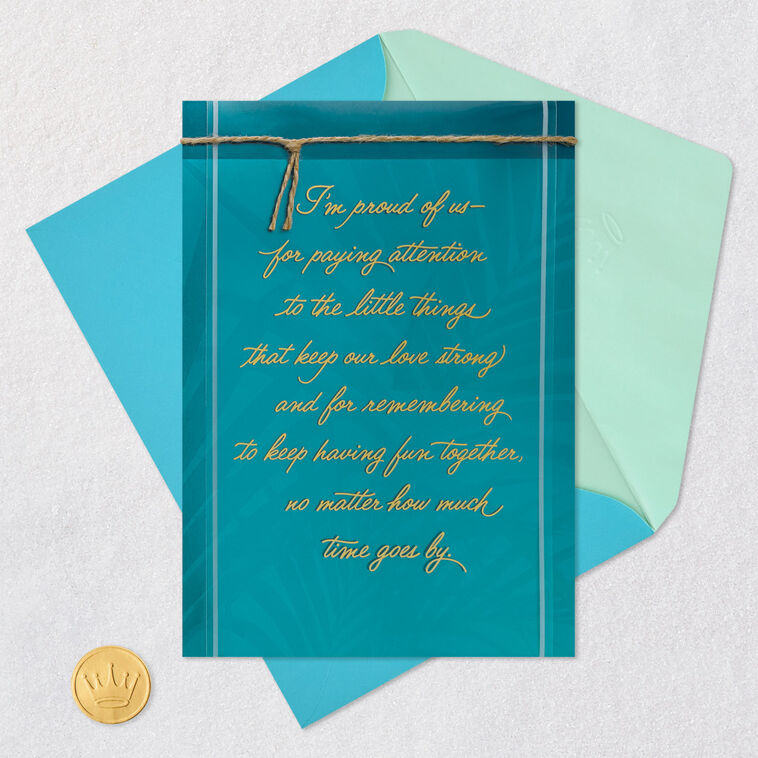 I'm proud of us—
for paying attention
to the little things
that keep our love strong
and for remembering
to keep having fun together,
no matter how much
time goes by.